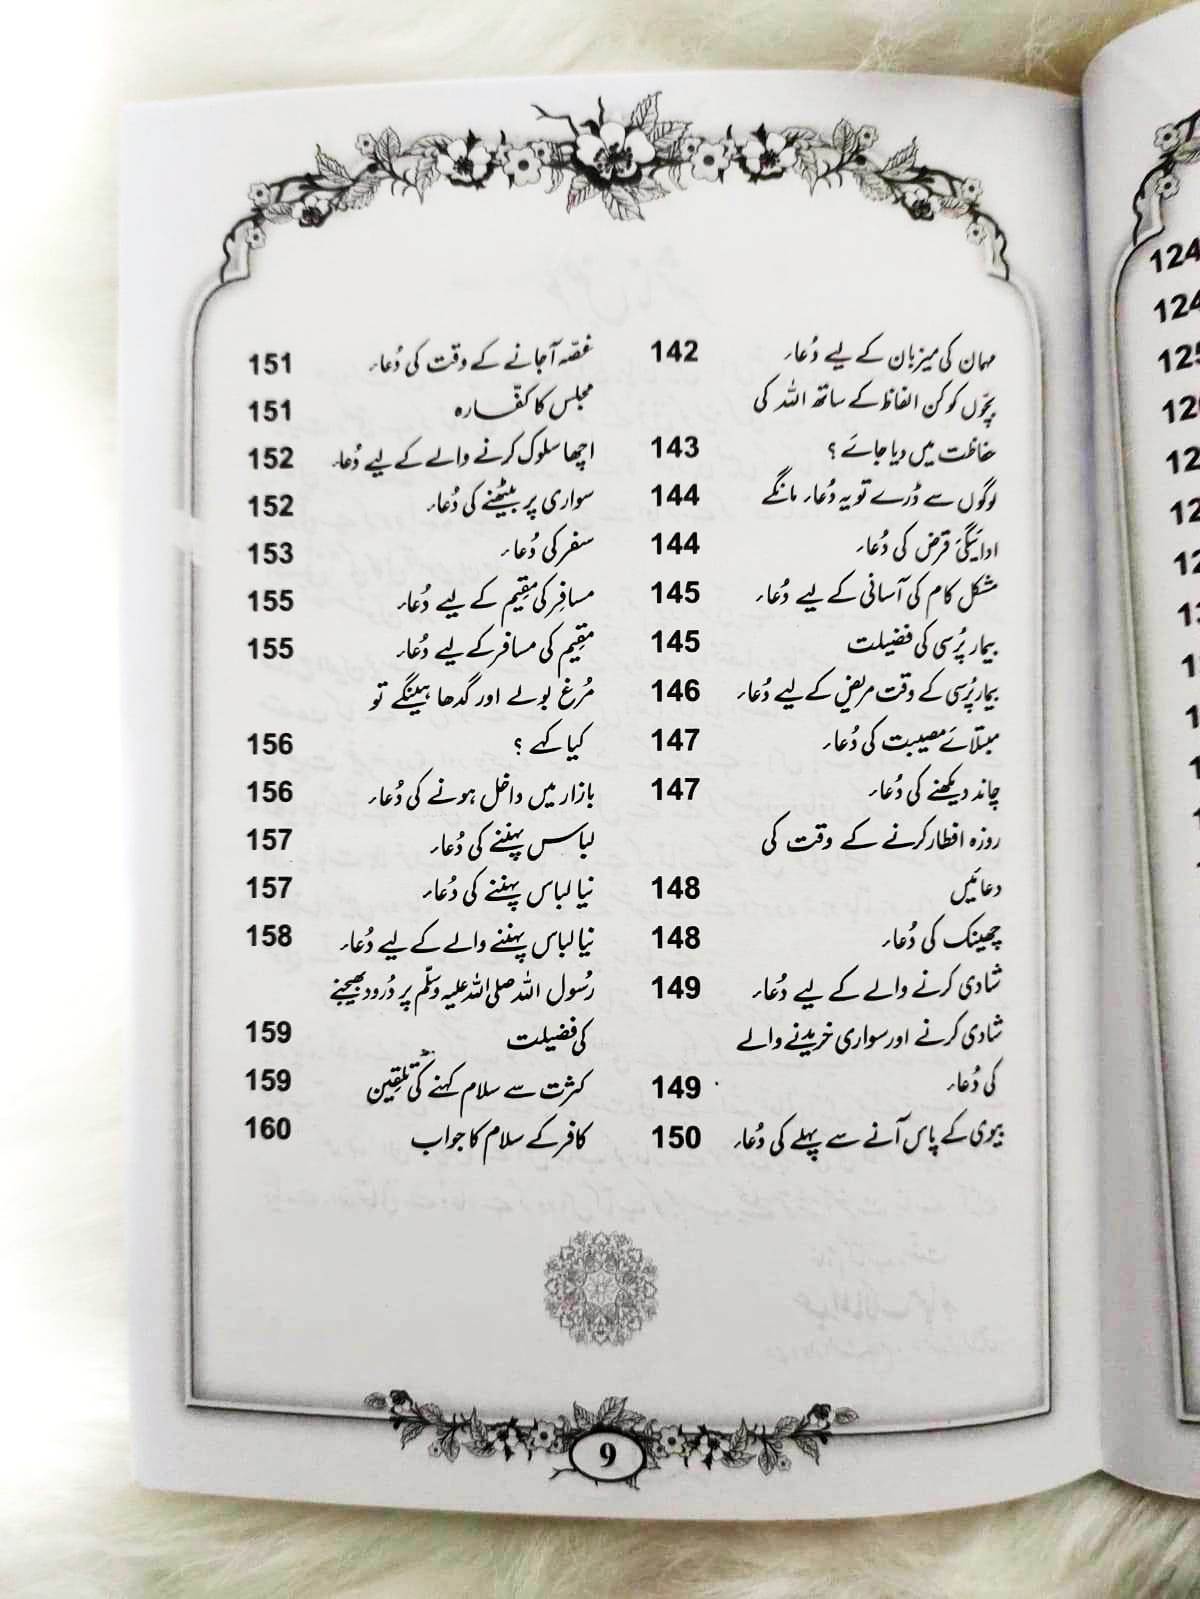 مہمان کی میزبان کے لیے دُعاء 142
بچّوں کو کن الفاظ کے ساتھ اللہ کی
حفاظت میں دیا جائے ؟ 143
لوگوں سے ڈرے تو یہ دُعاء مانگے 144
ادائیگیٔ قرض کی دُعاء 144
مشکل کام کی آسانی کے لیے دُعاء 145
بیمار پُرسی کی فضیلت 145
بیمار پُرسی کے وقت مریض کے لیے دُعاء 146
مبتلائے مصیبت کی دُعاء 147
چاند دیکھنے کی دُعاء 147
روزہ افطار کرنے کے وقت کی
دعائیں 148
چھینک کی دُعاء 148
شادی کرنے والے کے لیے دُعاء 149
شادی کرنے اور سواری خریدنے والے
کی دُعاء 149
بیوی کے پاس آنے سے پہلے کی دُعاء 150
غصّہ آجانے کے وقت کی دُعاء 151
مجلس کا کفّارہ 151
اچھا سلوک کرنے والے کے لیے دُعاء 152
سواری پر بیٹھنے کی دُعاء 152
سفر کی دُعاء 153
مسافِر کی مقِیم کے لیے دُعاء 155
مقِیم کی مسافر کے لیے دُعاء 155
مُرغ بولے اور گدھا ہینگے تو
کیا کہے ؟ 156
بازار میں داخل ہونے کی دُعاء 156
لباس پہننے کی دُعاء 157
نیا لباس پہننے کی دُعاء 157
نیا لباس پہننے والے کے لیے دُعاء 158
رسُول اللہ صلی اللہ علیہ وسلّم پر دُرود بھیجنے
کی فضیلت 159
کثرت سے سلام کہنے کی تلقِین 159
کافر کے سلام کا جواب 160
9
124
124